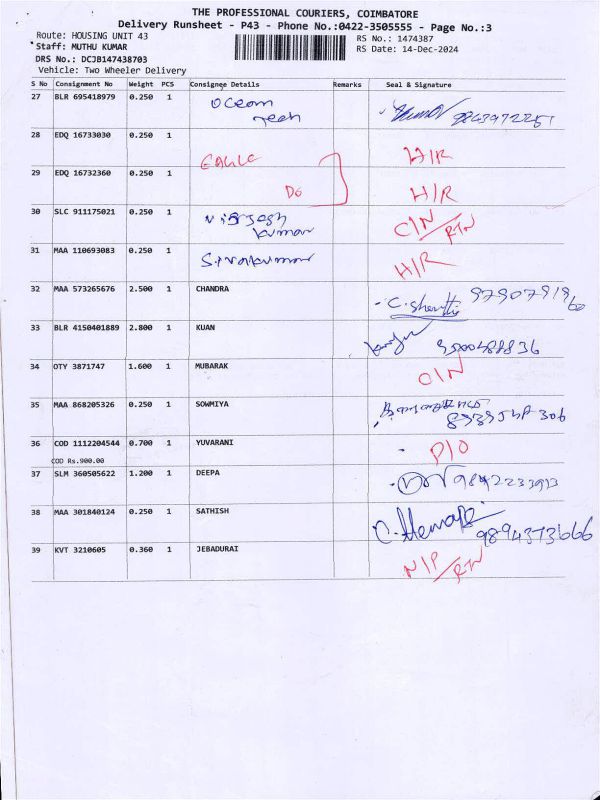 THE PROFESSIONAL COURIERS, COIMBATORE
Delivery Runsheet - P43 - Phone No.:0422-3505555 - Page No.:3
Route: HOUSING UNIT 43 RS No.: 1474387
Staff: MUTHU KUMAR RS Date: 14-Dec-2024
DRS No.: DCJB147438703
Vehicle: Two Wheeler Delivery
S No Consignment No Weight PCS Consignee Details Remarks Seal & Signature
27 BLR 695418979 0.250 1 Ocean
Tech
28 EDQ 16733030 0.250 1 EAGLE H/R
29 EDQ 16732360 0.250 1 Do H/R
30 SLC 911175021 0.250 1 C/N/RTN
kumar
31 MAA 110693083 0.250 1 Sivakumar H/R
32 MAA 573265676 2.500 1 CHANDRA
33 BLR 4150401889 2.800 1 KUAN
34 OTY 3871747 1.600 1 MUBARAK O/N
35 MAA 868205326 0.250 1 SOWMIYA
36 COD 1112204544 0.700 1 YUVARANI P/O
COD Rs.900.00
37 SLM 360505622 1.200 1 DEEPA 9842233913
38 MAA 301840124 0.250 1 SATHISH 9894373666
39 KVT 3210605 0.360 1 JEBADURAI N/P/RTN